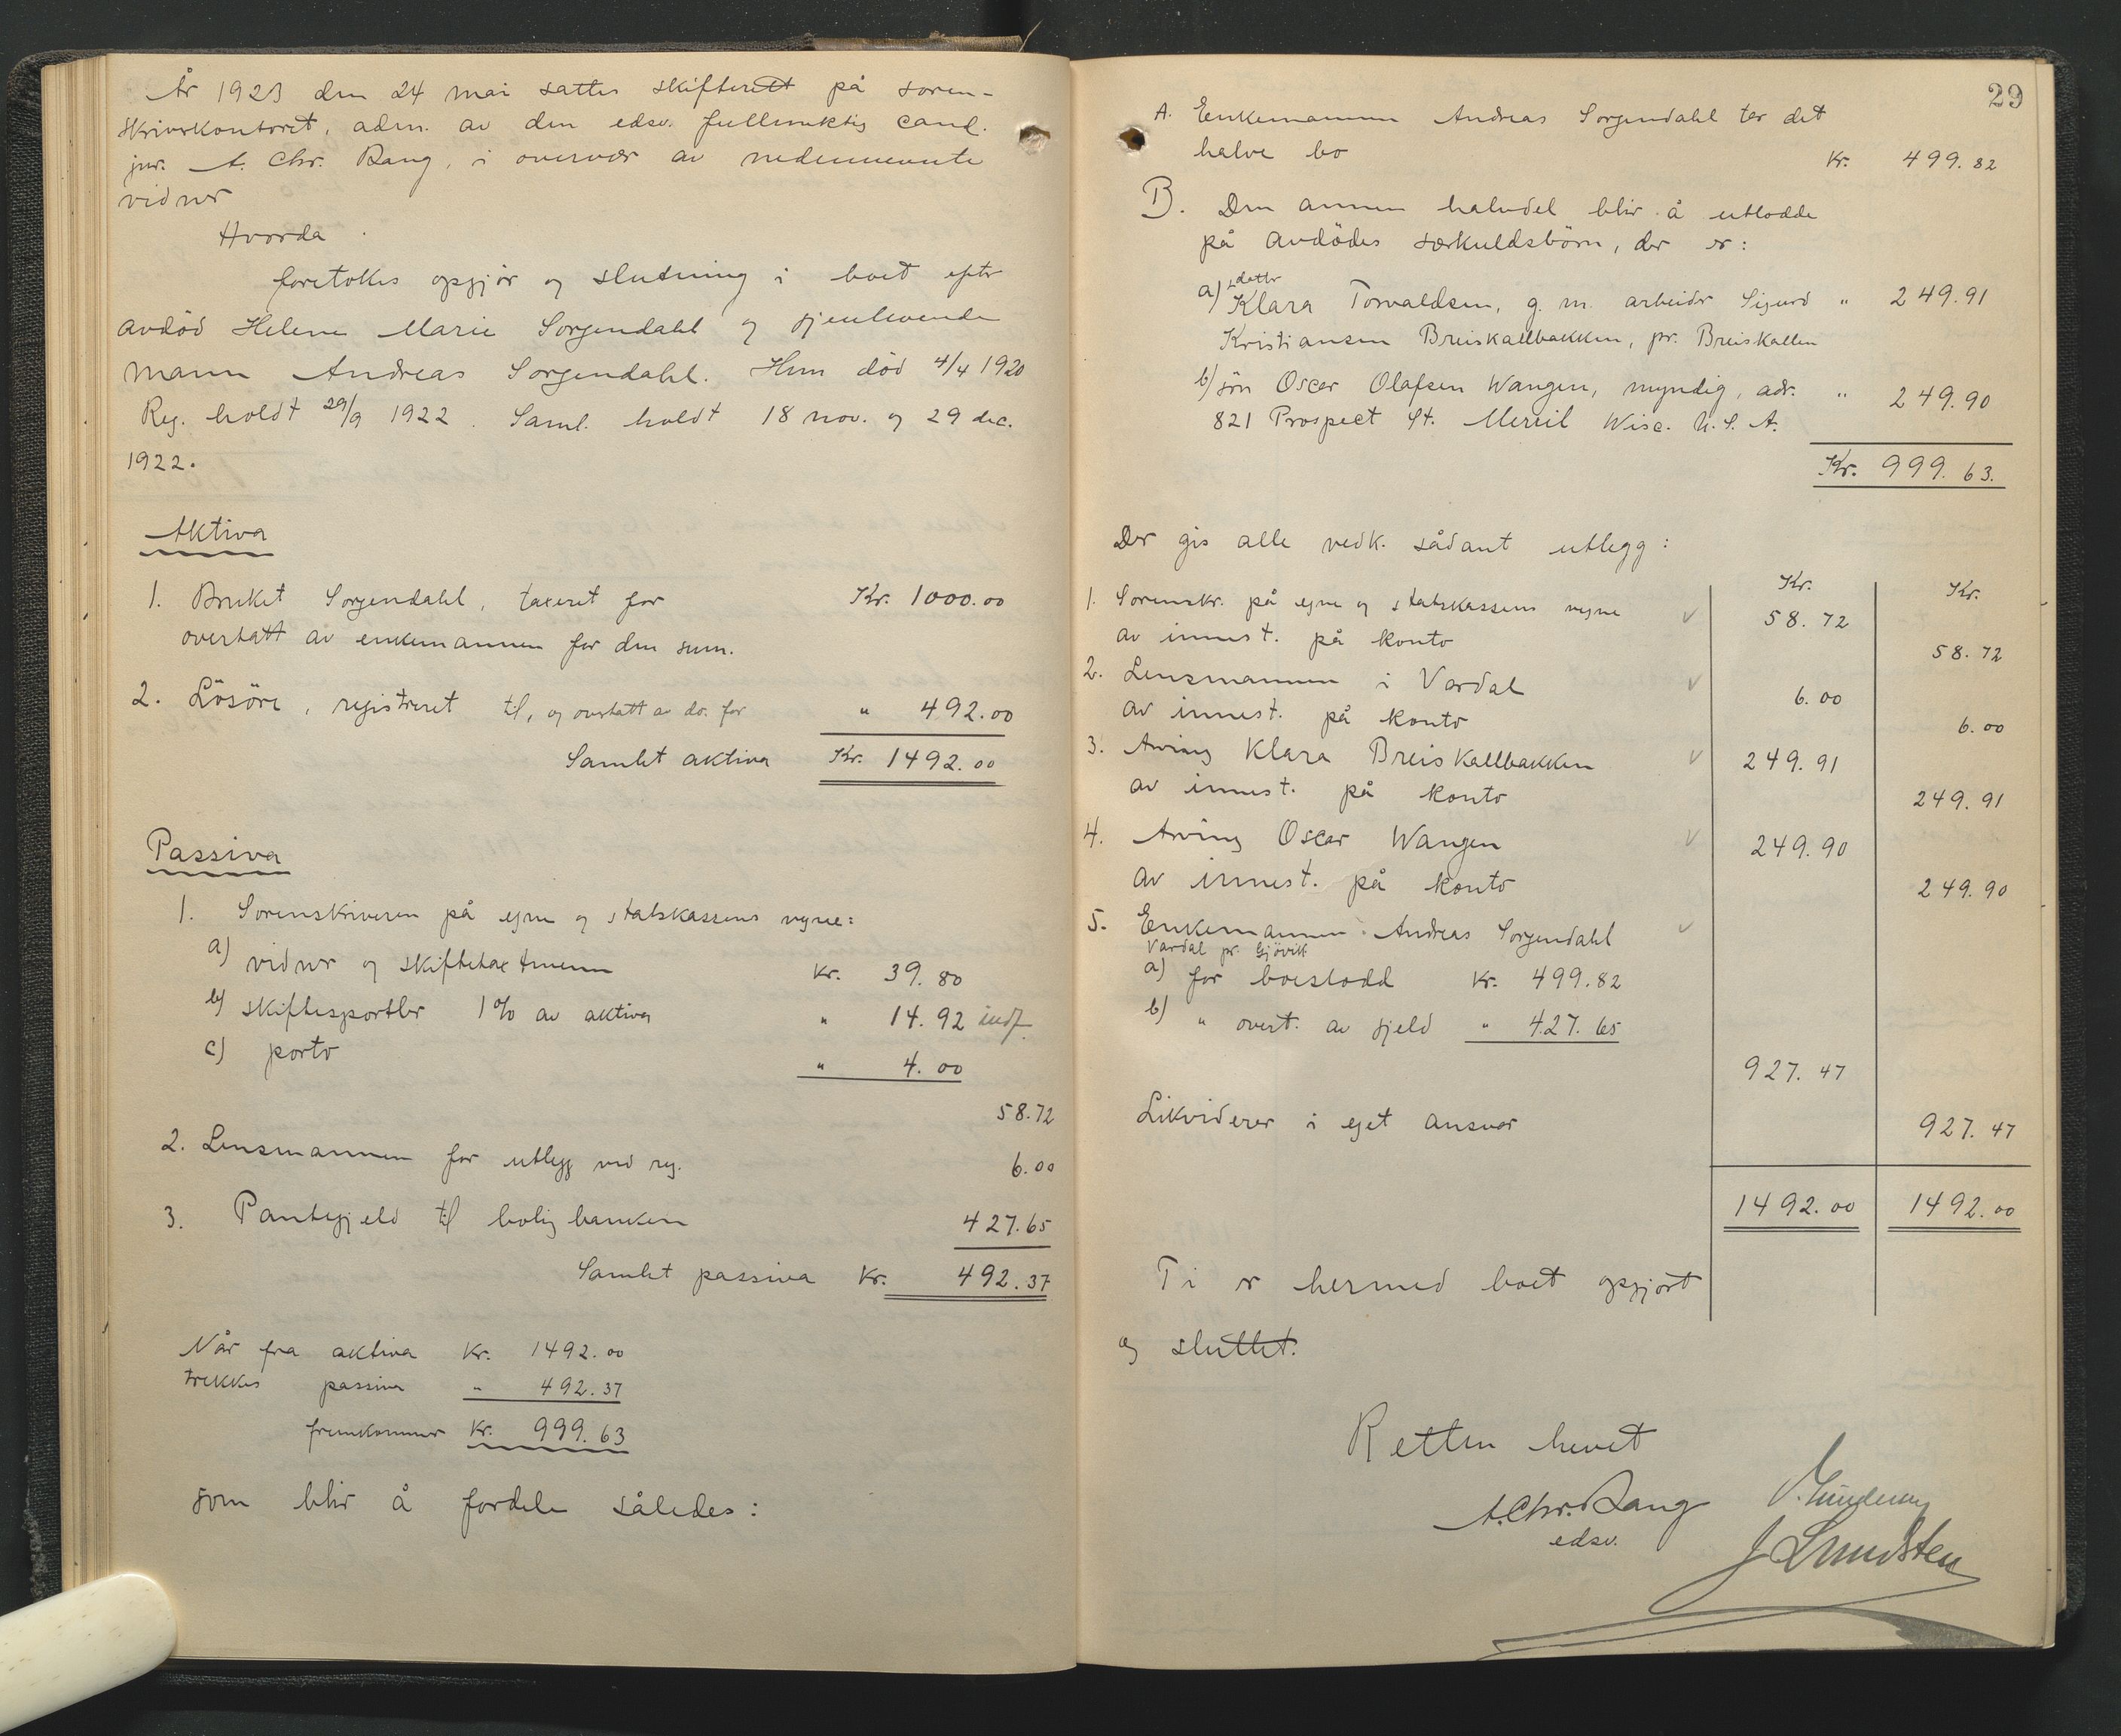 År 1923 den 24 mai sattes skifterett på soren-
skriverkontoret, adm. av den edsv. fullmektig cand.
jur. A. Chr. Bang, i overvær av nedennevnte
vidner
Hvorda
foretokes opgjør og slutning i boet efter
avdød Helene Marie Sorgendahl og gjenlevende
mann Andreas Sorgendahl. Hun död 4/4 1920
Reg. holdt 29/9 1922. Saml. holdt 18 nov. og 29 dec.
1922.
Aktiva
1. Bruket Sorgendahl, taxeret for Kr. 1000.00
overtatt av enkemannen for den sum.
2. Lösöre, registreret til, og overtatt av do. for " 492.00
Samlet aktiva Kr. 1492.00
Passiva
1. Sorenskriveren på egne og statskassens vegne:
a) vidner og skiftetaxtmenn Kr. 39.80
b) skiftesportler 1% av aktiva " 14.92 indf.
c) porto " 4.00
58.72
2. Lensmannen for utlegg ved reg. 6.00
3. Pantegjeld til boligbanken 427.65
Samlet passiva Kr. 492.37
Når fra aktiva Kr. 1492.00
trekkes passiva " 492.37
fremkommer Kr. 999.63
som blir å fordele således:
29
A. Enkemannen Andreas Sorgendahl tar det
halve bo Kr. 499.82
B. Den annen halvdel blir å utlodde
på avdödes særkuldsbörn, der er:
a) datter
Klara Torvaldsen, g. m. arbeider Sigurd " 249.91
Kristiansen Breiskallbakken, pr. Breiskallen
b) sön Oscar Olafsen Wangen, myndig, adr. " 249.90
821 Prospect St. Merril Wisc. U.S.A.
Kr. 999.63.
Der gis alle vedk. sådant utlegg:
Kr. Kr.
1. Sorenskr. på egne og statskassens vegne 58.72
av innest. på konto 58.72
2. Lensmannen i Vardal 6.00
av innest. på konto 6.00
3. Arving Klara Breiskallbakken 249.91
av innest. på konto 249.91
4. Arving Oscar Wangen 249.90
av innest. på konto 249.90
5. Enkemannen Andreas Sorgendahl
Vardal pr. Gjövik
a) for boeslodd Kr. 499.82
b) " overt. av gjeld " 427.65
927.47
Likviderer i eget ansvar 927.47
1492.00 1492.00
Ti er hermed boet opgjört
og sluttet.
Retten hevet
A.Chr.Bang
edsv.
J Lundsten